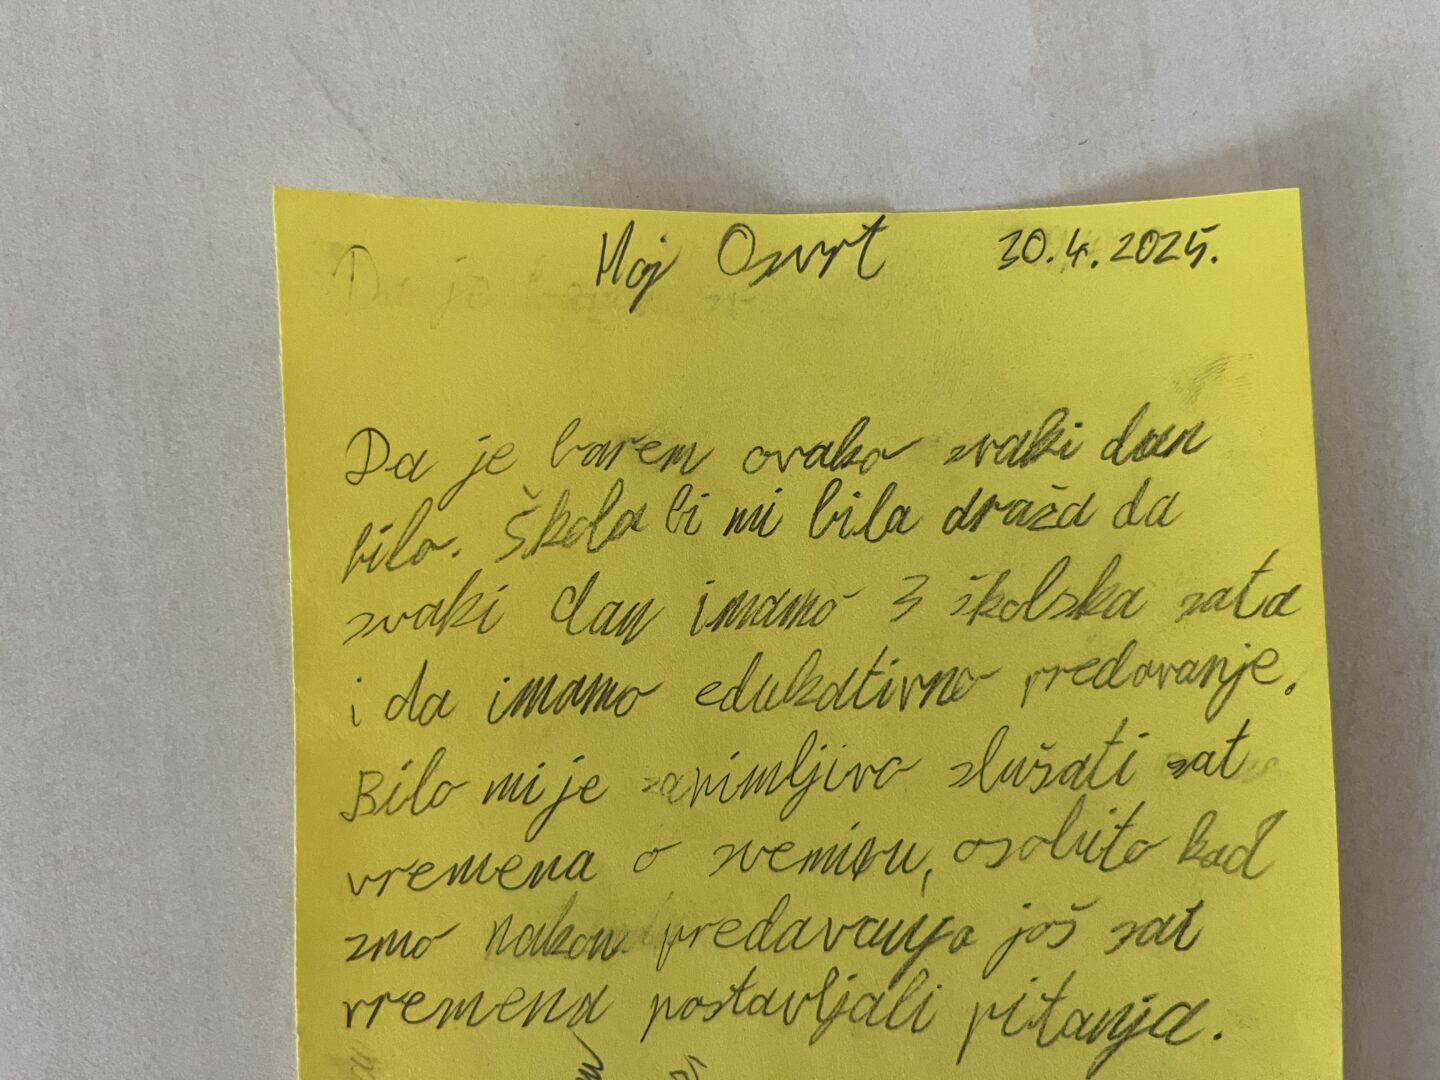 Moj Osvrt 30.4.2025.
Da je barem ovako svaki dan
bilo. Škola bi mi bila draža da
svaki dan imamo 3 školska sata
i da imamo edukativno predavanje.
Bilo mi je zanimljivo slušati sat
vremena o svemiru, osobito kad
smo nakon predavanja još sat
vremena postavljali pitanja.